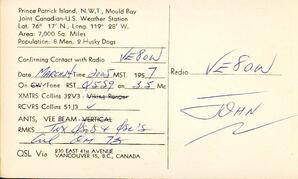 Prince Patrick Island, N.W.T., Mould Bay
Joint Canadian-U.S. Weather Station
Lat. 76° 17' N., Long. 119° 28' W.
Area: 7,000 Sq. Miles
Population: 8 Men, 2 Husky Dogs
Confirming Contact with Radio VE8OW
Date March 14 Time MST. 1957
On CW Fone RST Q5 S9 on 3.5 Mc
XMTRS Collins 32V3 - Viking Ranger
RCVRS Collins 51J3 ✓
ANTS, VEE BEAM - VERTICAL
RMKS Tnx
QSL Via 230 EAST 41st AVENUE
VANCOUVER 15, B.C., CANADA
Radio VE8OW
JOHN